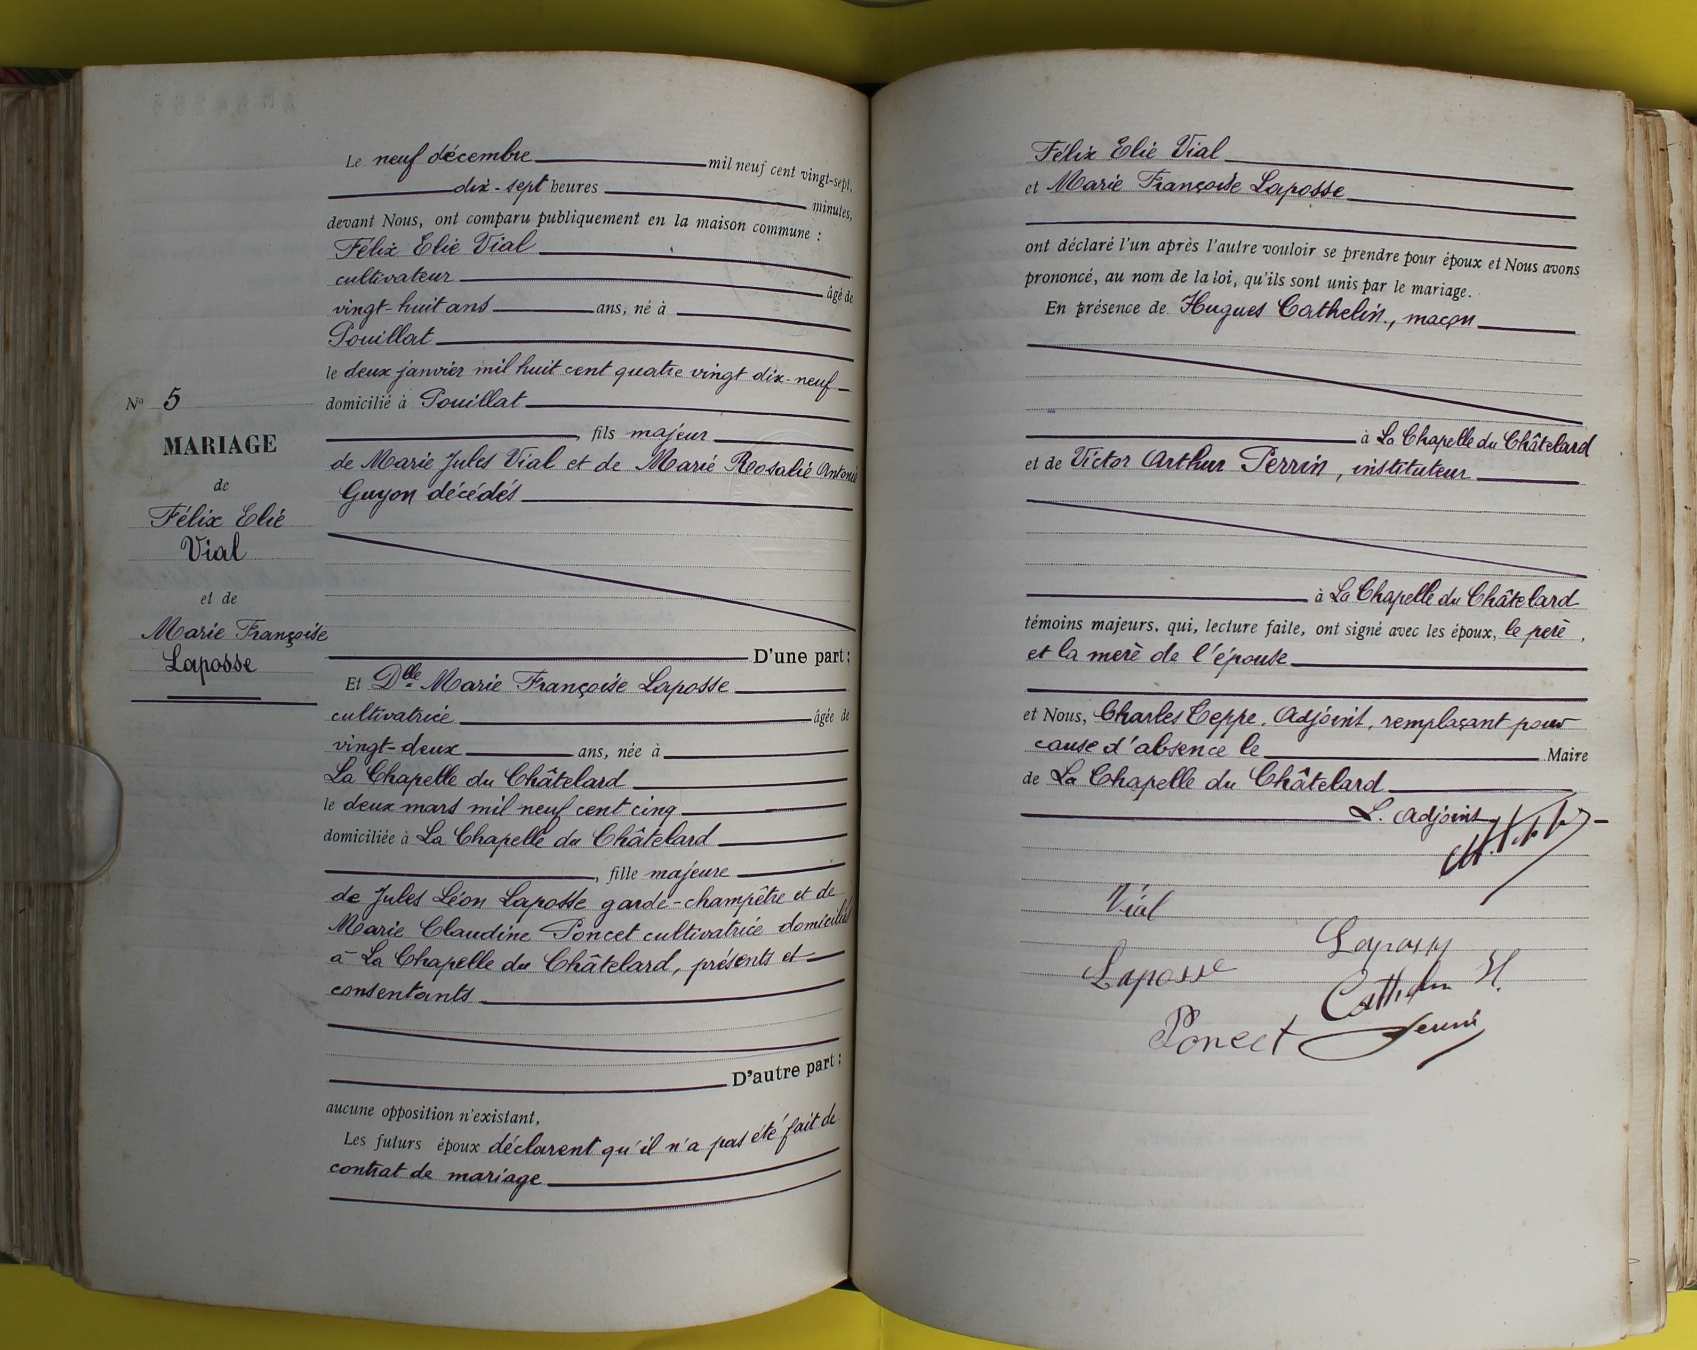 Le neuf décembre mil neuf cent vingt-sept,
dix-sept heures minutes,
devant Nous, ont comparu publiquement en la maison commune :
Félix Elie Vial
cultivateur âgé de
vingt-huit ans ans, né à
Pouillat
le deux janvier mil huit cent quatre vingt dix-neuf
domicilié à Pouillat
, fils majeur
de Marie Jules Vial et de Marie Rosalie Antonie
Guyon décédés
D'une part :
Et Dlle Marie Françoise Laposse
cultivatrice âgée de
vingt-deux ans, née à
La Chapelle du Châtelard
le deux mars mil neuf cent cinq
domiciliée à La Chapelle du Châtelard
, fille majeure
de Jules Léon Laposse garde-champêtre et de
Marie Claudine Poncet cultivatrice domiciliés
à La Chapelle du Châtelard, présents et
consentants
D'autre part :
aucune opposition n'existant,
Les futurs époux déclarent qu'il n'a pas été fait de
contrat de mariage
No 5
MARIAGE
de
Félix Elie
Vial
et de
Marie Françoise
Laposse
Félix Elie Vial
et Marie Françoise Laposse
ont déclaré l'un après l'autre vouloir se prendre pour époux et Nous avons
prononcé, au nom de la loi, qu'ils sont unis par le mariage.
En présence de Hugues Cathelin, maçon
à La Chapelle du Châtelard
et de Victor Arthur Perrin, instituteur
à La Chapelle du Châtelard
témoins majeurs, qui, lecture faite, ont signé avec les époux, le père,
et la mère de l'épouse
et Nous, Charles Teppe, Adjoint, remplaçant pour
cause d'absence le Maire
de La Chapelle du Châtelard
L. Adjoint
Vial
Laposse
Cathelin H.
Poncet